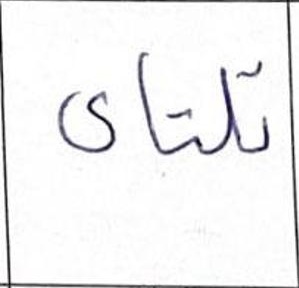 تلتای